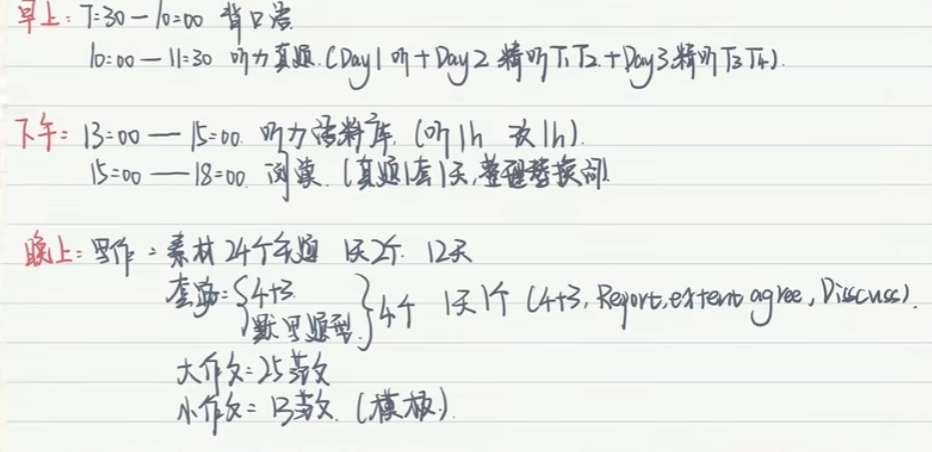 早上: 7:30 — 10:00 背口语
10:00 — 11:30 听力真题.(Day1 听 + Day2 精听 T1 T2 + Day3 精听 T3 T4).
下午: 13:00 — 15:00. 听力语料库. (听1h 改1h).
15:00 — 18:00. 阅读. (真题1套1天,整理替换词)
晚上: 写作: 素材24个主题 1天2个. 12天
套路: { 4+3. } 4个 1天1个 (4+3, Report, extent agree, Disscuss).
默写题型.
大作文: 25范文
小作文: 13范文. (模板).